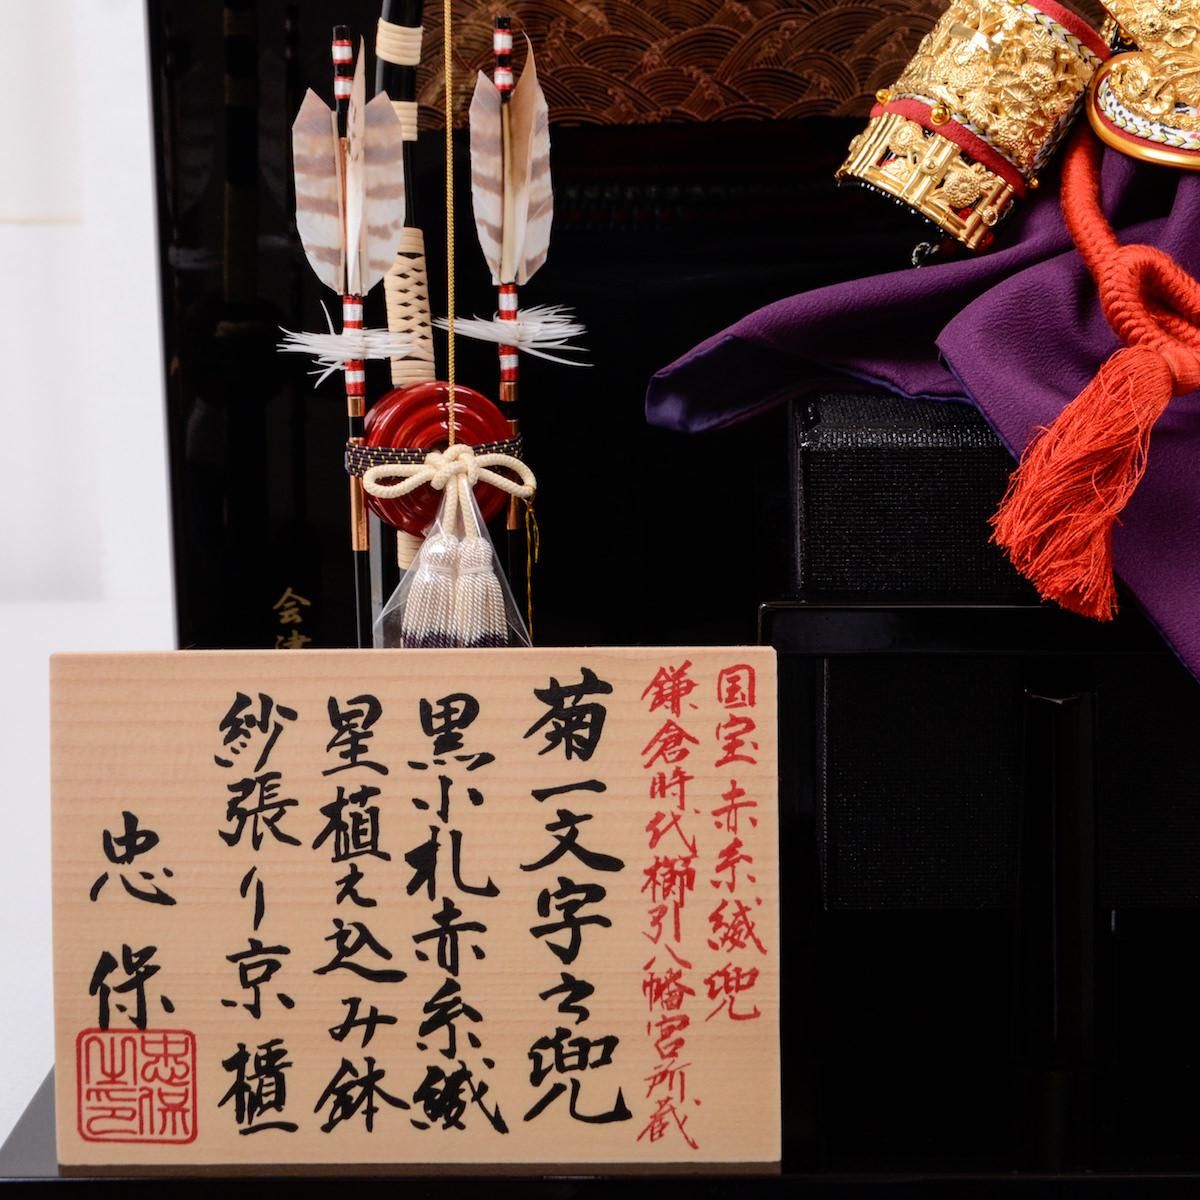 国宝赤糸縅兜
鎌倉時代櫛引八幡宮所蔵
菊一文字之兜
黒小札赤糸縅
星植え込み鉢
紗張り京櫃
忠保
忠保之印
会津